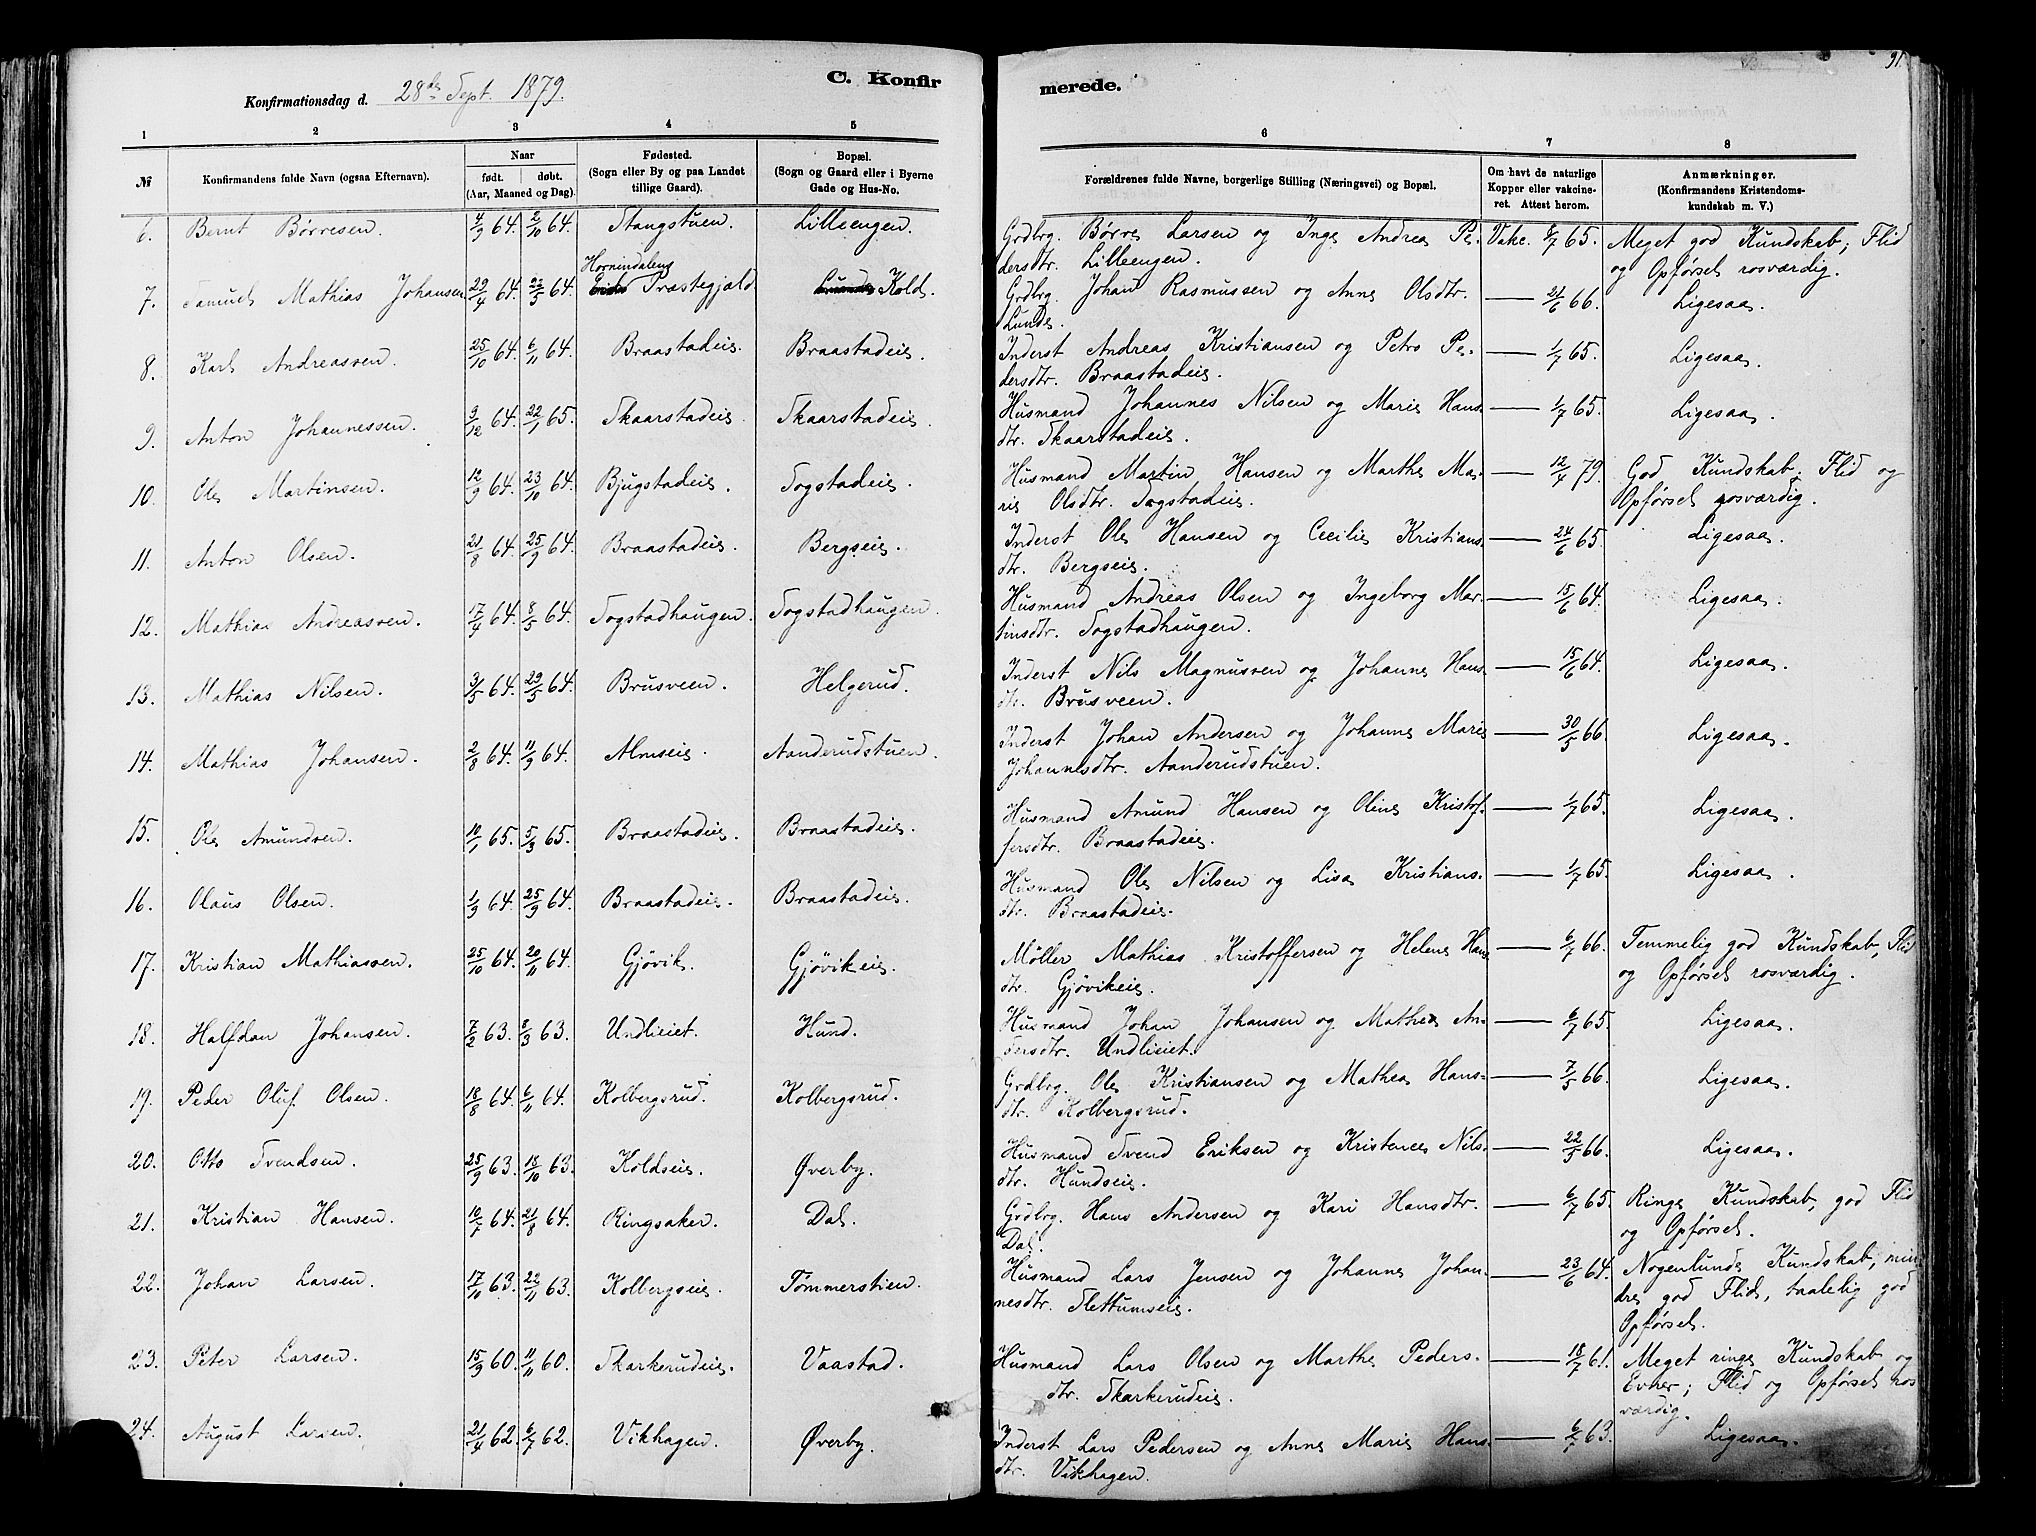 91
C. Konfirmerede.
Konfirmationsdag d. 28de Sept. 1879.
1 2 3 4 5 6 7 8
№ Konfirmandens fulde Navn (ogsaa Efternavn). Naar født. døbt. (Aar, Maaned og Dag). Fødested. (Sogn eller By og paa Landet tillige Gaard). Bopæl. (Sogn og Gaard eller i Byerne Gade og Hus-No. Forældrenes fulde Navne, borgerlige Stilling (Næringsvei) og Bopæl. Om havt de naturlige Kopper eller vakcineret. Attest herom. Anmærkninger. (Konfirmandens Kristendomskundskab m. V.)
6. Bernt Börresen. 4/9 64. 2/10 64. Stangstuen. Lilleengen. Grdbrg. Börre Larsen og Inge Andrea Pe- Vakc. 8/7 65. Meget god Kundskab; Flid
dersdtr. Lilleengen. og Opførsel rosværdig.
7. Samuel Mathias Johansen 29/4 64. 22/5 64. Hornindalens Præstegjæld Kold. Grdbrg. Johan Rasmussen og Anne Olsdtr. — 21/6 66. Ligesaa.
Lunde.
8. Karl Andreassen. 25/10 64. 6/11 64. Braastadeie. Braastadeie. Inderst Andreas Kristiansen og Petro Pe- — 1/7 65. Ligesaa.
dersdtr. Braastadeie.
9. Anton Johannessen. 9/12 64. 22/1 65. Skaarstadeie. Skaarstadeie. Husmand Johannes Nilsen og Marie Hans- — 1/7 65. Ligesaa.
dtr. Skaarstadeie.
10. Ole Martinsen. 12/9 64. 23/10 64. Bjugstadeie. Sogstadeie. Husmand Martin Hansen og Marthe Ma- — 12/4 79. God Kundskab. Flid og
rie Olsdtr. Sogstadeie. Opførsel rosværdig.
11. Anton Olsen. 21/8 64. 25/9 64. Braastadeie. Bergseie. Inderst Ole Hansen og Cecilie Kristians- — 24/6 65. Ligesaa.
dtr. Bergseie.
12. Mathias Andreassen. 17/4 64. 8/5 64. Sogstadhaugen. Sogstadhaugen. Husmand Andreas Olsen og Ingeborg Mar- — 15/6 64. Ligesaa.
tinsdtr. Sogstadhaugen.
13. Mathias Nilsen. 3/5 64. 29/5 64. Brusveen. Helgerud. Inderst Nils Magnussen og Johanne Hans- — 15/6 64. Ligesaa.
dtr. Brusveen.
14. Mathias Johansen. 2/8 64. 11/9 64. Almeie. Aanderudstuen. Inderst Johan Andersen og Johanne Marie — 30/5 66. Ligesaa.
Johannesdtr. Aanderudstuen.
15. Ole Amundsen. 10/1 65. 5/3 65. Braastadeie. Braastadeie. Husmand Amund Hansen og Oline Kristof- — 1/7 65. Ligesaa.
fersdtr. Braastadeie.
16. Olaus Olsen. 1/9 64. 25/9 64. Braastadeie. Braastadeie. Husmand Ole Nilsen og Lisa Kristians- — 1/7 65. Ligesaa.
dtr. Braastadeie.
17. Kristian Mathiassen. 25/10 64. 20/11 64. Gjövik. Gjövikeie. Möller Mathias Kristoffersen og Helene Hans — 6/7 66. Temmelig god Kundskab, Flid
dtr. Gjövikeie. og Opførsel rosværdig.
18. Halfdan Johansen. 7/2 63. 8/3 63. Undlieiet. Hund. Husmand Johan Johansen og Mathea An- — 6/7 65. Ligesaa.
dersdtr. Undlieiet.
19. Peder Oluf Olsen. 18/8 64. 6/11 64. Kolbergsrud. Kolbergsrud. Grdbrg. Ole Kristiansen og Mathea Hans- — 7/5 66. Ligesaa.
dtr. Kolbergsrud.
20. Otto Svendsen. 25/9 63. 18/10 63. Koldseie. Øverby. Husmand Svend Eriksen og Kristence Nils- — 22/5 66. Ligesaa.
dtr. Hundseie.
21. Kristian Hansen. 10/7 64. 21/8 64. Ringsaker. Dal. Grdbrg. Hans Andersen og Kari Hansdtr. — 6/7 65. Ringe Kundskab, god Flid
Dal. og Opførsel.
22. Johan Larsen. 17/10 63. 22/11 63. Kolbergseie. Tømmerstien. Husmand Lars Jensen og Johanne Johan- — 23/6 64. Nogenlunde Kundskab, min
nesdtr. Slettumseie. dre god Flid, taalelig god
Opførsel.
23. Peter Larsen. 15/9 60. 11/11 60. Skarkerudeie. Vaastad. Husmand Lars Olsen og Marthe Peders- — 18/7 61. Meget ringe Kundskab og
dtr. Skarkerudeie. Evner; Flid og Opførsel ros
værdig.
24. August Larsen. 21/4 62. 6/7 62. Vikhagen. Øverby. Inderst Lars Pedersen og Anne Marie Hans- — 6/7 63. Ligesaa.
dtr. Vikhagen.